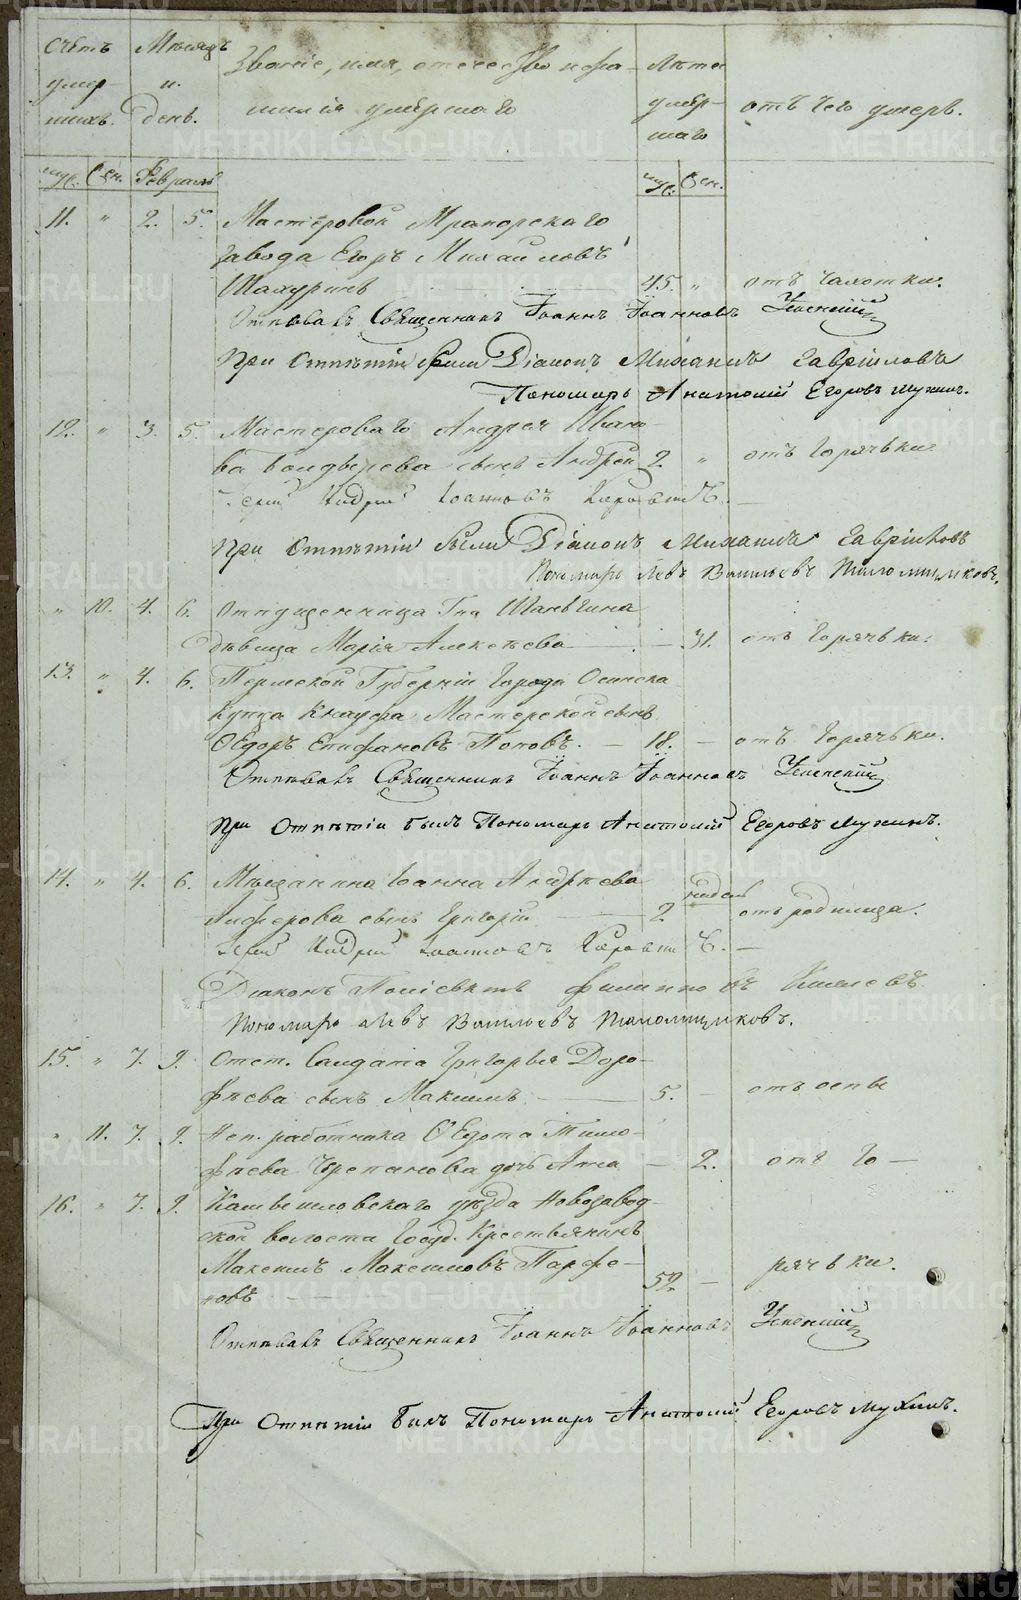 Счетъ Мѣсяцъ Званіе, имя, отечество и фа- Лѣта
умер- и умер- отъ чего умеръ.
шихъ. день. милія умершаго шаго
муж. Жен. Февраль муж. Жен.
11. " 2. 5. Мастеровой Мраморскаго
завода Егоръ Михайловъ
Шахуринъ 45. " отъ чахотки.
Отпѣвалъ Священникъ Іоаннъ Іоанновъ Успенскій
При Отпѣтіи были Діаконъ Михаилъ Гавріиловъ
Пономарь Анатолій Егоровъ Мухинъ.
12. " 3. 5. Мастероваго Андрея Ивано-
ва сынъ Андрей 2 " отъ Горячьки.
Іерей Андрей Іоанновъ
При Отпѣтіи были Діаконъ Михаилъ Гавріиловъ
Пономарь Левъ Васильевъ Топоми
" 10. 4. 6. отпущенница Гна
Дѣвица Марія Алексѣева — 31. отъ Горячьки.
13. " 4. 6. Пермской Губерніи Города Осинска
Купца Кнауфа Мастерской сынъ
Ѳедоръ Епифановъ Поповъ. — 18. — отъ Горячьки.
Отпѣвалъ Священникъ Іоаннъ Іоанновъ Успенскій
При Отпѣтіи былъ Пономарь Анатолій Егоровъ Мухинъ.
14. " 4. 6. Мѣщанина Іоанна Андреева
сынъ Григорій — 2 недѣл отъ родимца.
Іерей Андрей Іоанновъ
Діаконъ Полієвктъ Филипповъ
Пономарь Левъ Васильевъ
15. " 7. 9. Отст. Салдата Григорья Доро-
фѣева сынъ Максимъ — 5. — отъ оспы
" 11. 7. 9. Неп. работника Ѳедота Тимо-
фѣева Черепанова дочь Анна — 2. отъ Го-
16. " 7. 9. Камышловскаго уѣзда Новозавод-
ской волости Госуд. Крестьянинъ
Максимъ Максимовъ Парфе- 52. — рячьки.
новъ
Отпѣвалъ Священникъ Іоаннъ Іоанновъ Успенскій
При Отпѣтіи былъ Пономарь Анатолій Егоровъ Мухинъ.
METRIKI.GASO-URAL.RU